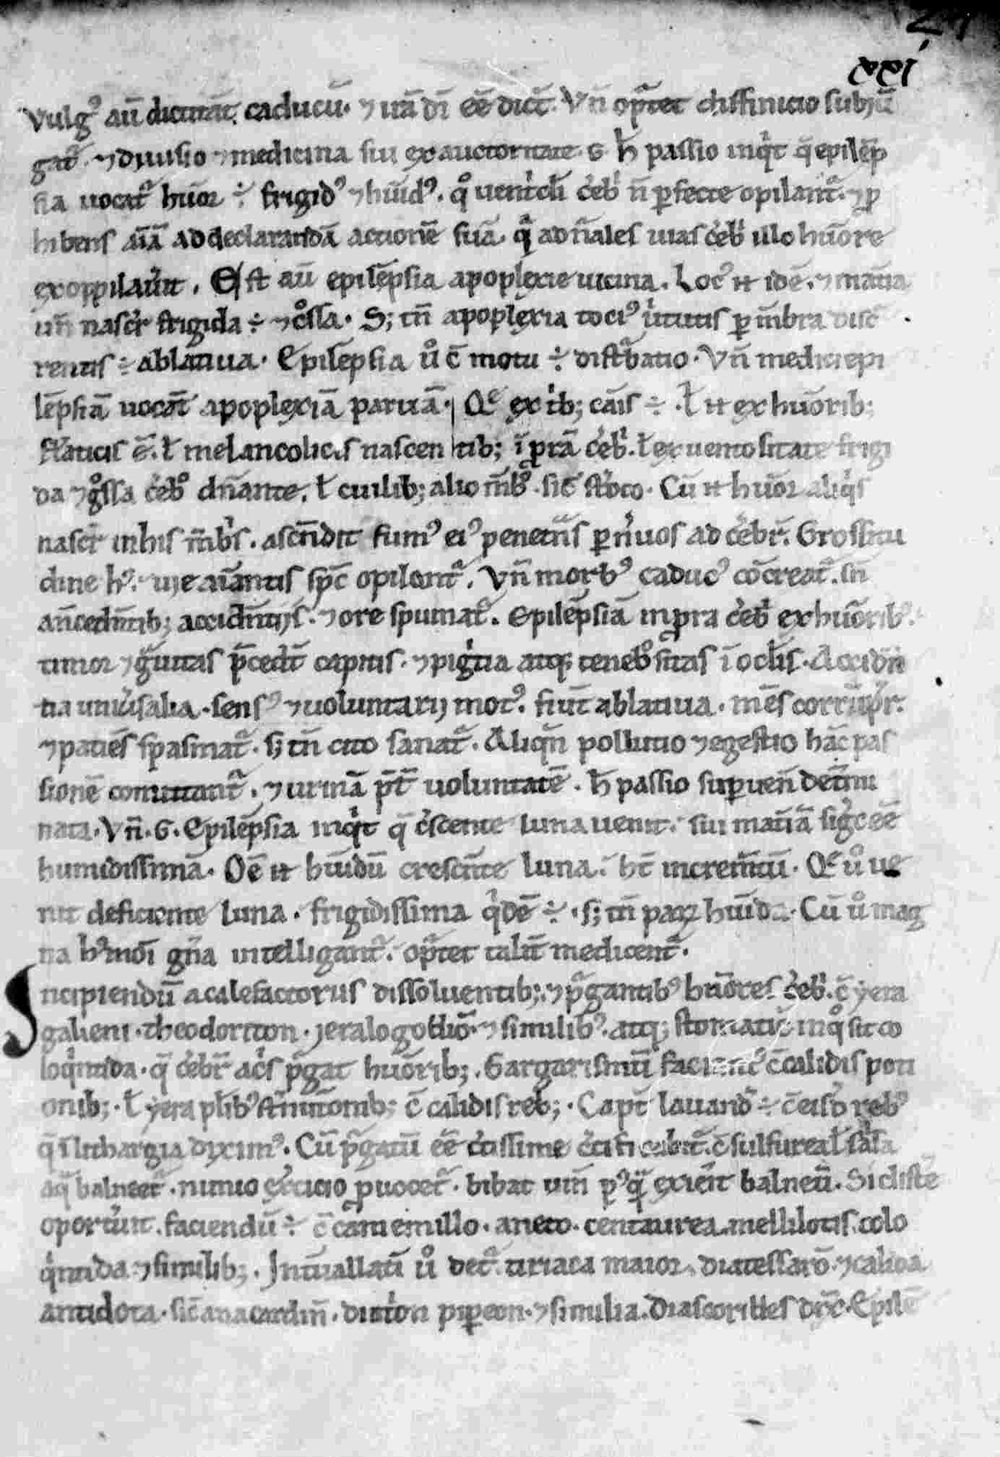 xxi
vulgꝰ aū dictitat̄ caducū· ⁊ uā dī eē dict̄· Vn̄ oꝑtet diffinicio subiū
gat̃· ⁊ diuisio ⁊ medicina siu ex auctoritate· G· h̄ passio inqͥt q̄ epilēp
sia uocat̃ hūor ÷ frigidꝰ ⁊ hūidꝰ· qͦ uent̃cĺi c̃ebͥ n̄ ꝑfecte opilant̃· ⁊ ꝓ
hibens aīā ad declarandā actionē suā· qͥ ad n̄ales uias c̃ebͥ illo hūore
exoppilau̇it· Est aū epilēpsia apoplexie uicina· Locꝰ .n. idē· ⁊ mat̃ia
un̄ nascit̃ frigida ÷ ⁊ gͦssa· S; tn̄ apoplexia tociꝰ u̇tutis ꝑ m̄bra disc̄
rentis ÷ ablatiua· Epilēpsia u̇o c̄ motu ÷ distͥbatio· Vn̄ medici epi
lēpsiā uocāt apoplexiā paruā· Qꝫ ex tͥb; cāis ÷· ł .n. ex hūorib;
flāticis ē· ł melancolicis nascentib; ī ꝓra c̃ebͥ· ł ex uentositate frigi
da ⁊ gͦssa c̃ebͦ dn̄ante· ł cuilib; alio m̄bͦ· sic̄ stōco· Cū .n. hūor aliqͥs
nascit̃ in his m̄bͥs· ascēndit fumꝰ eiꝰ penetn̄s ꝑ n̄uos ad c̃ebr̄· Grossitu
dine hꝰ uie aīantis spc̄ opilant̃· Vn̄ morbꝰ caducꝰ cōcreat̃· sn̄
an̄cedn̄tib; accidn̄tijs· ⁊ ore spumat̃· Epilēpsiā in ꝓra c̃ebͥ ex hūoribꝰ
timor ⁊ gͣuitas p̄cedit capitis· ⁊ pigͥtia atq; tenebͦsitas ī oclis· Accidn̄
tia uniu̇salia· sensꝰ ⁊ uoluntarij motꝰ fiūt ablatiua· mēs corrūpit̃·
⁊ patiēs spasmat̃· s; tn̄ cito sanat̃· Aliqn̄ pollutio ⁊ egestio hāc pas
sionē comittant̃· ⁊ urinā p̄t̃ uoluntatē· h̄ passio suꝑuen̄ det̃mi
nata· Vn̄· G· Epilēpsia inqͥt q̄ c̃scente luna uenit· siu mat̃iā sigͨ eē
humidissimā· Oē .n. hūidū crescente luna· ht̄ incremn̄tū· Qꝫ u̇o ue
nit deficiente luna· frigidissima qͥdē ÷· s; tn̄ parꝫ hūida· Cū u̇o mag
na hꝰmōi gn̄a intelligant̃· oꝑtet talit̃ medicent̃·
Incipiendū a calefactoriis dissoluentib; ⁊ pͥgantibꝰ hūores c̃ebͥ· c̄ yera
galieni· theodoriton· jeralogodiō· ⁊ similibꝰ· atq; stomatic̄ inqͦ sit co
loqͥntida· q̄ c̃ebr̄ ac̃s pͥgat hūorib;· Gargarismū faciant̃ c̄ calidis poti
onib;· ł yera pl̃ibꝰ stn̄utorib; c̄ calidis reb;· Capt̃ lauand̄ ÷ c̄ eisd̃ rebꝰ
q̄ ī lithargia diximꝰ· Cū pͥgatū eē c̃tissime c̄ sulfurea ł salsa
aq̃ balneet̃· nimio ex̃cicio ꝓuocet̃· bibat uin̄ pꝰq̃ exierit balneū· Si clistē
oportu̇it· faciendū ÷ c̄ camemillo· aneto· centaurea· mellilotis· colo
qͥntida ⁊ similib;· Int̃uallati u̇o det̃ tiriaca maior· diatessarō· ⁊ calida
antidota· sic̄ anacardin̄· diat̃on piꝑeon· ⁊ similia· Diascorides dix̄· Epilē